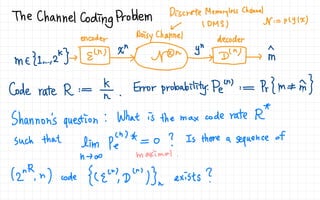 The Channel Coding Problem
Discrete Memoryless Channel
(DMS)
N := p(y|x)
encoder
Noisy Channel
decoder
m ∈ {1,…,2^k} → ℰ^(n) → x^n → N^⊗n → y^n → D^(n) → m̂
Code rate R := k/n . Error probability: Pe^(n) := Pr{m ≠ m̂}
Shannon's question : What is the max code rate R*
such that lim n→∞ Pe^(n)* = 0 ? Is there a sequence of
maximal
(2^nR, n) code {(ℰ^(n), D^(n))}n exists ?